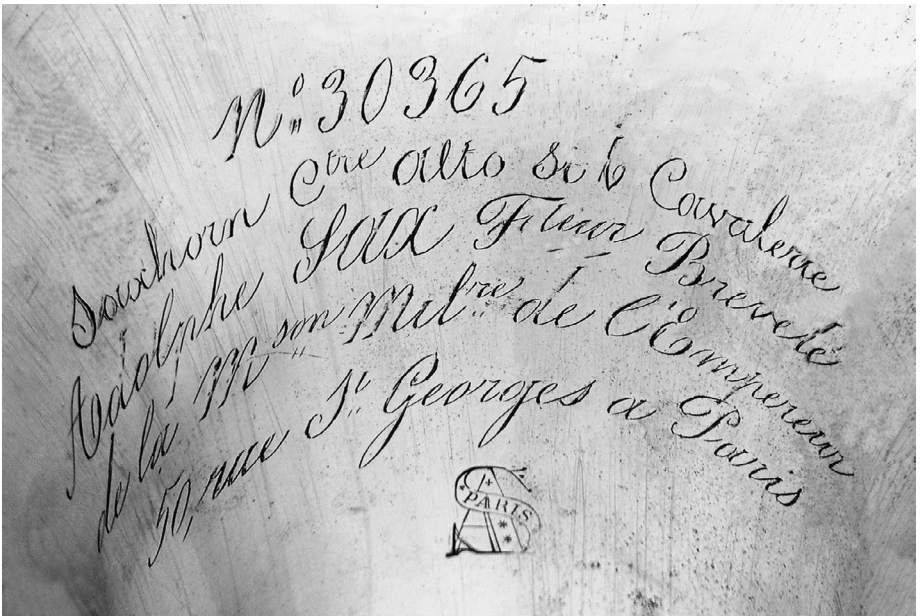 No. 30365
Saxhorn Ctre alto si b Cavalerie
Adolphe SAX Fteur Breveté
de la Mson Milre de l'Empereur
50, rue St Georges a Paris
PARIS